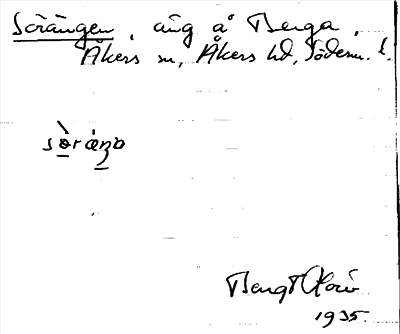 Sörängen, äng å Berga,
Åkers sn, Åkers hd, Söderm. l.
sò̱ràŋ̱ə
Bengt
1935.